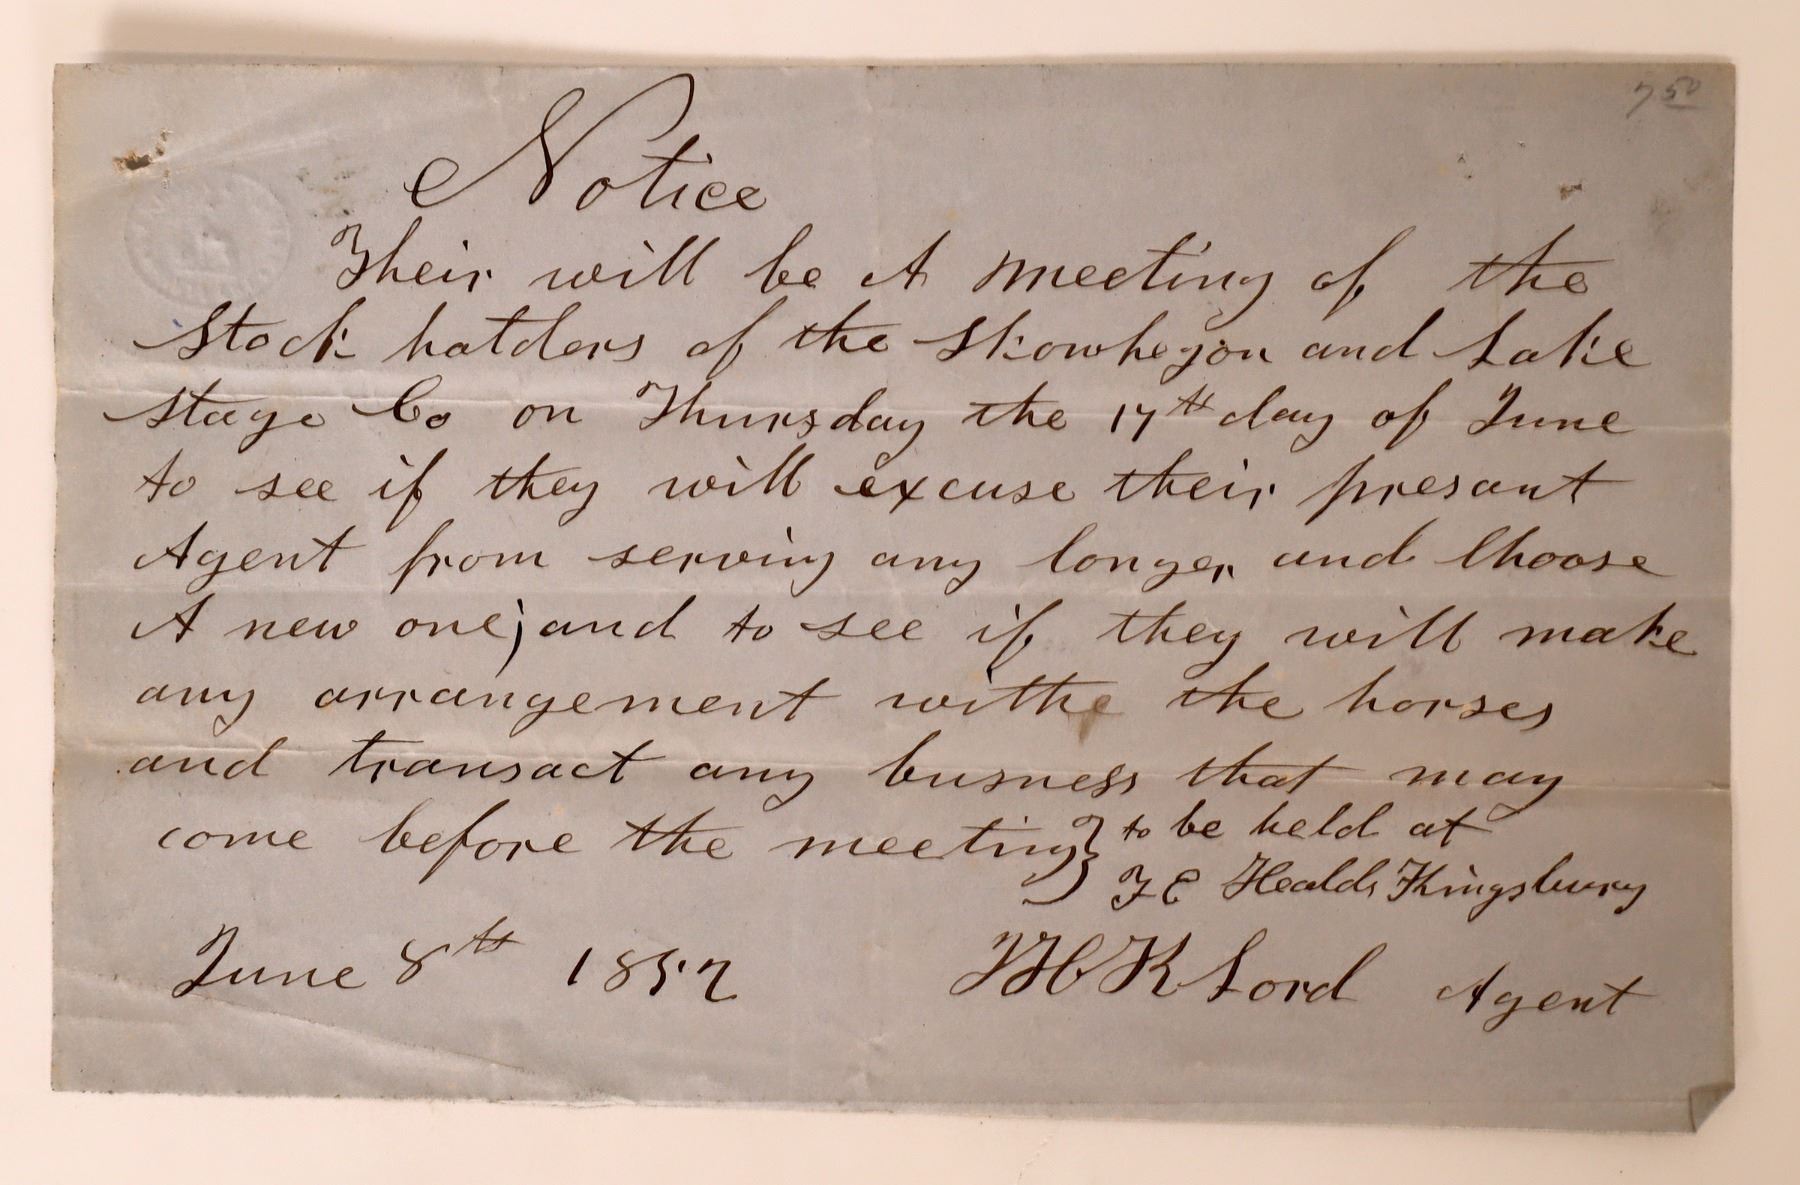 7 50
Notice
Their will be A meeting of the
Stock hatders of the Skowhegon and Lake
Stage Co on Thursday the 17th day of June
to see if they will excuse their presant
Agent from serving any longer and Choose
A new one; and to see if they will make
any arrangement withe the horses
and transact any busness that may
come before the meeting } to be held at
F E Healds Kingsbury
June 8th 1852
Lord Agent